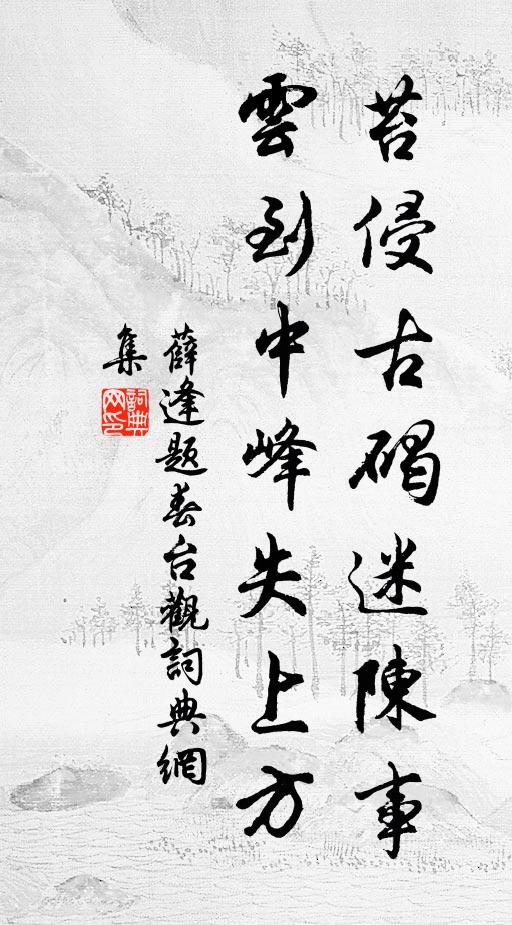 苔侵古碣迷陳事
雲到中峰失上方
薛逢題春台觀詞典網
集
詞典
网印